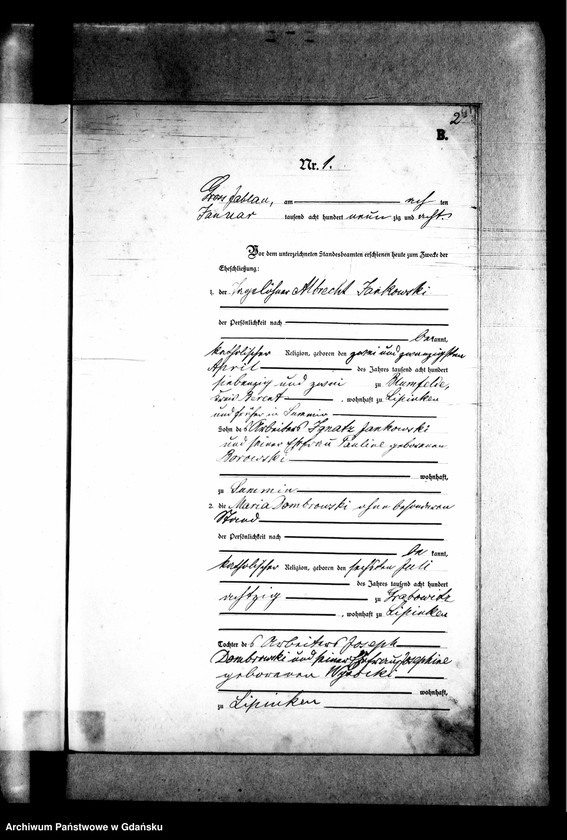 2
B.
Nr. 1.
Gross Jablau, am acht ten
Januar tausend acht hundert neun zig und acht.
Vor dem unterzeichneten Standesbeamten erschienen heute zum Zwecke der
Eheschließung:
1. der Albrecht Jankowski
der Persönlichkeit nach
bekannt,
katholischer Religion, geboren den zwei und zwanzigsten
April des Jahres tausend acht hundert
siebenzig und zwei zu Blumfelde,
Kreis Berent, wohnhaft zu Lipinken
und früher in Summin
Sohn des Arbeiters Ignatz Jankowski
und seiner Ehefrau Pauline geborenen
Borowski
wohnhaft,
zu Summin
2. die Maria Dombrowski ohne besonderen
Stand
der Persönlichkeit nach
be kannt,
katholischer Religion, geboren den sechsten Juli
des Jahres tausend acht hundert
achtzig zu Grabowitz
, wohnhaft zu Lipinken
Tochter des Arbeiters Joseph
Dombrowski und seiner Ehefrau Josephine
geborenen Wysocki
wohnhaft,
zu Lipinken
Archiwum Państwowe w Gdańsku